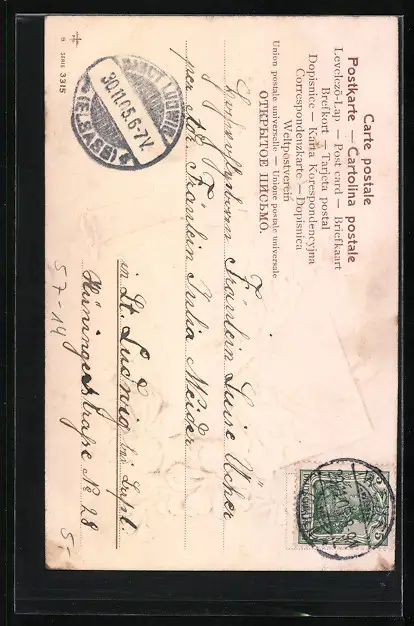 Carte postale
Postkarte — Cartolina postale
Levelező-Lap — Post card — Briefkaart
Brefkort — Tarjeta postal
Dopisnice — Karta Korespondencyjna
Correspondenzkarte — Dopisnica
Weltpostverein
ОТКРЫТОЕ ПИСЬМО.
Union postale universelle — Unione postale universale
Fräulein Luise Ucher
per Adr. Fräulein Julia Meider
in St. Ludwig bei Basel.
Hüningerstraße No 28
SANCT LUDWIG
30.11.05.6-7V.
(ELSASS)
SERIE 3315
57-14
5-